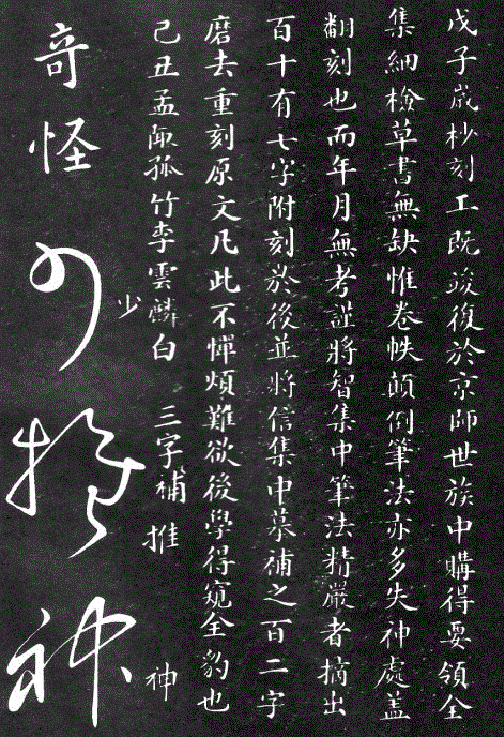 戊子歲杪刻工既竣復於京師世族中購得要領全
集細檢草書無缺惟卷帙顛倒筆法亦多失神處蓋
翻刻也而年月無考謹將智集中筆法精嚴者摘出
百十有七字附刻於後並將信集中摹補之百二字
磨去重刻原文凡此不憚煩難欲後學得窺全豹也
己丑孟陬孤竹李雲麟白
三字補
少
推
神
奇怪